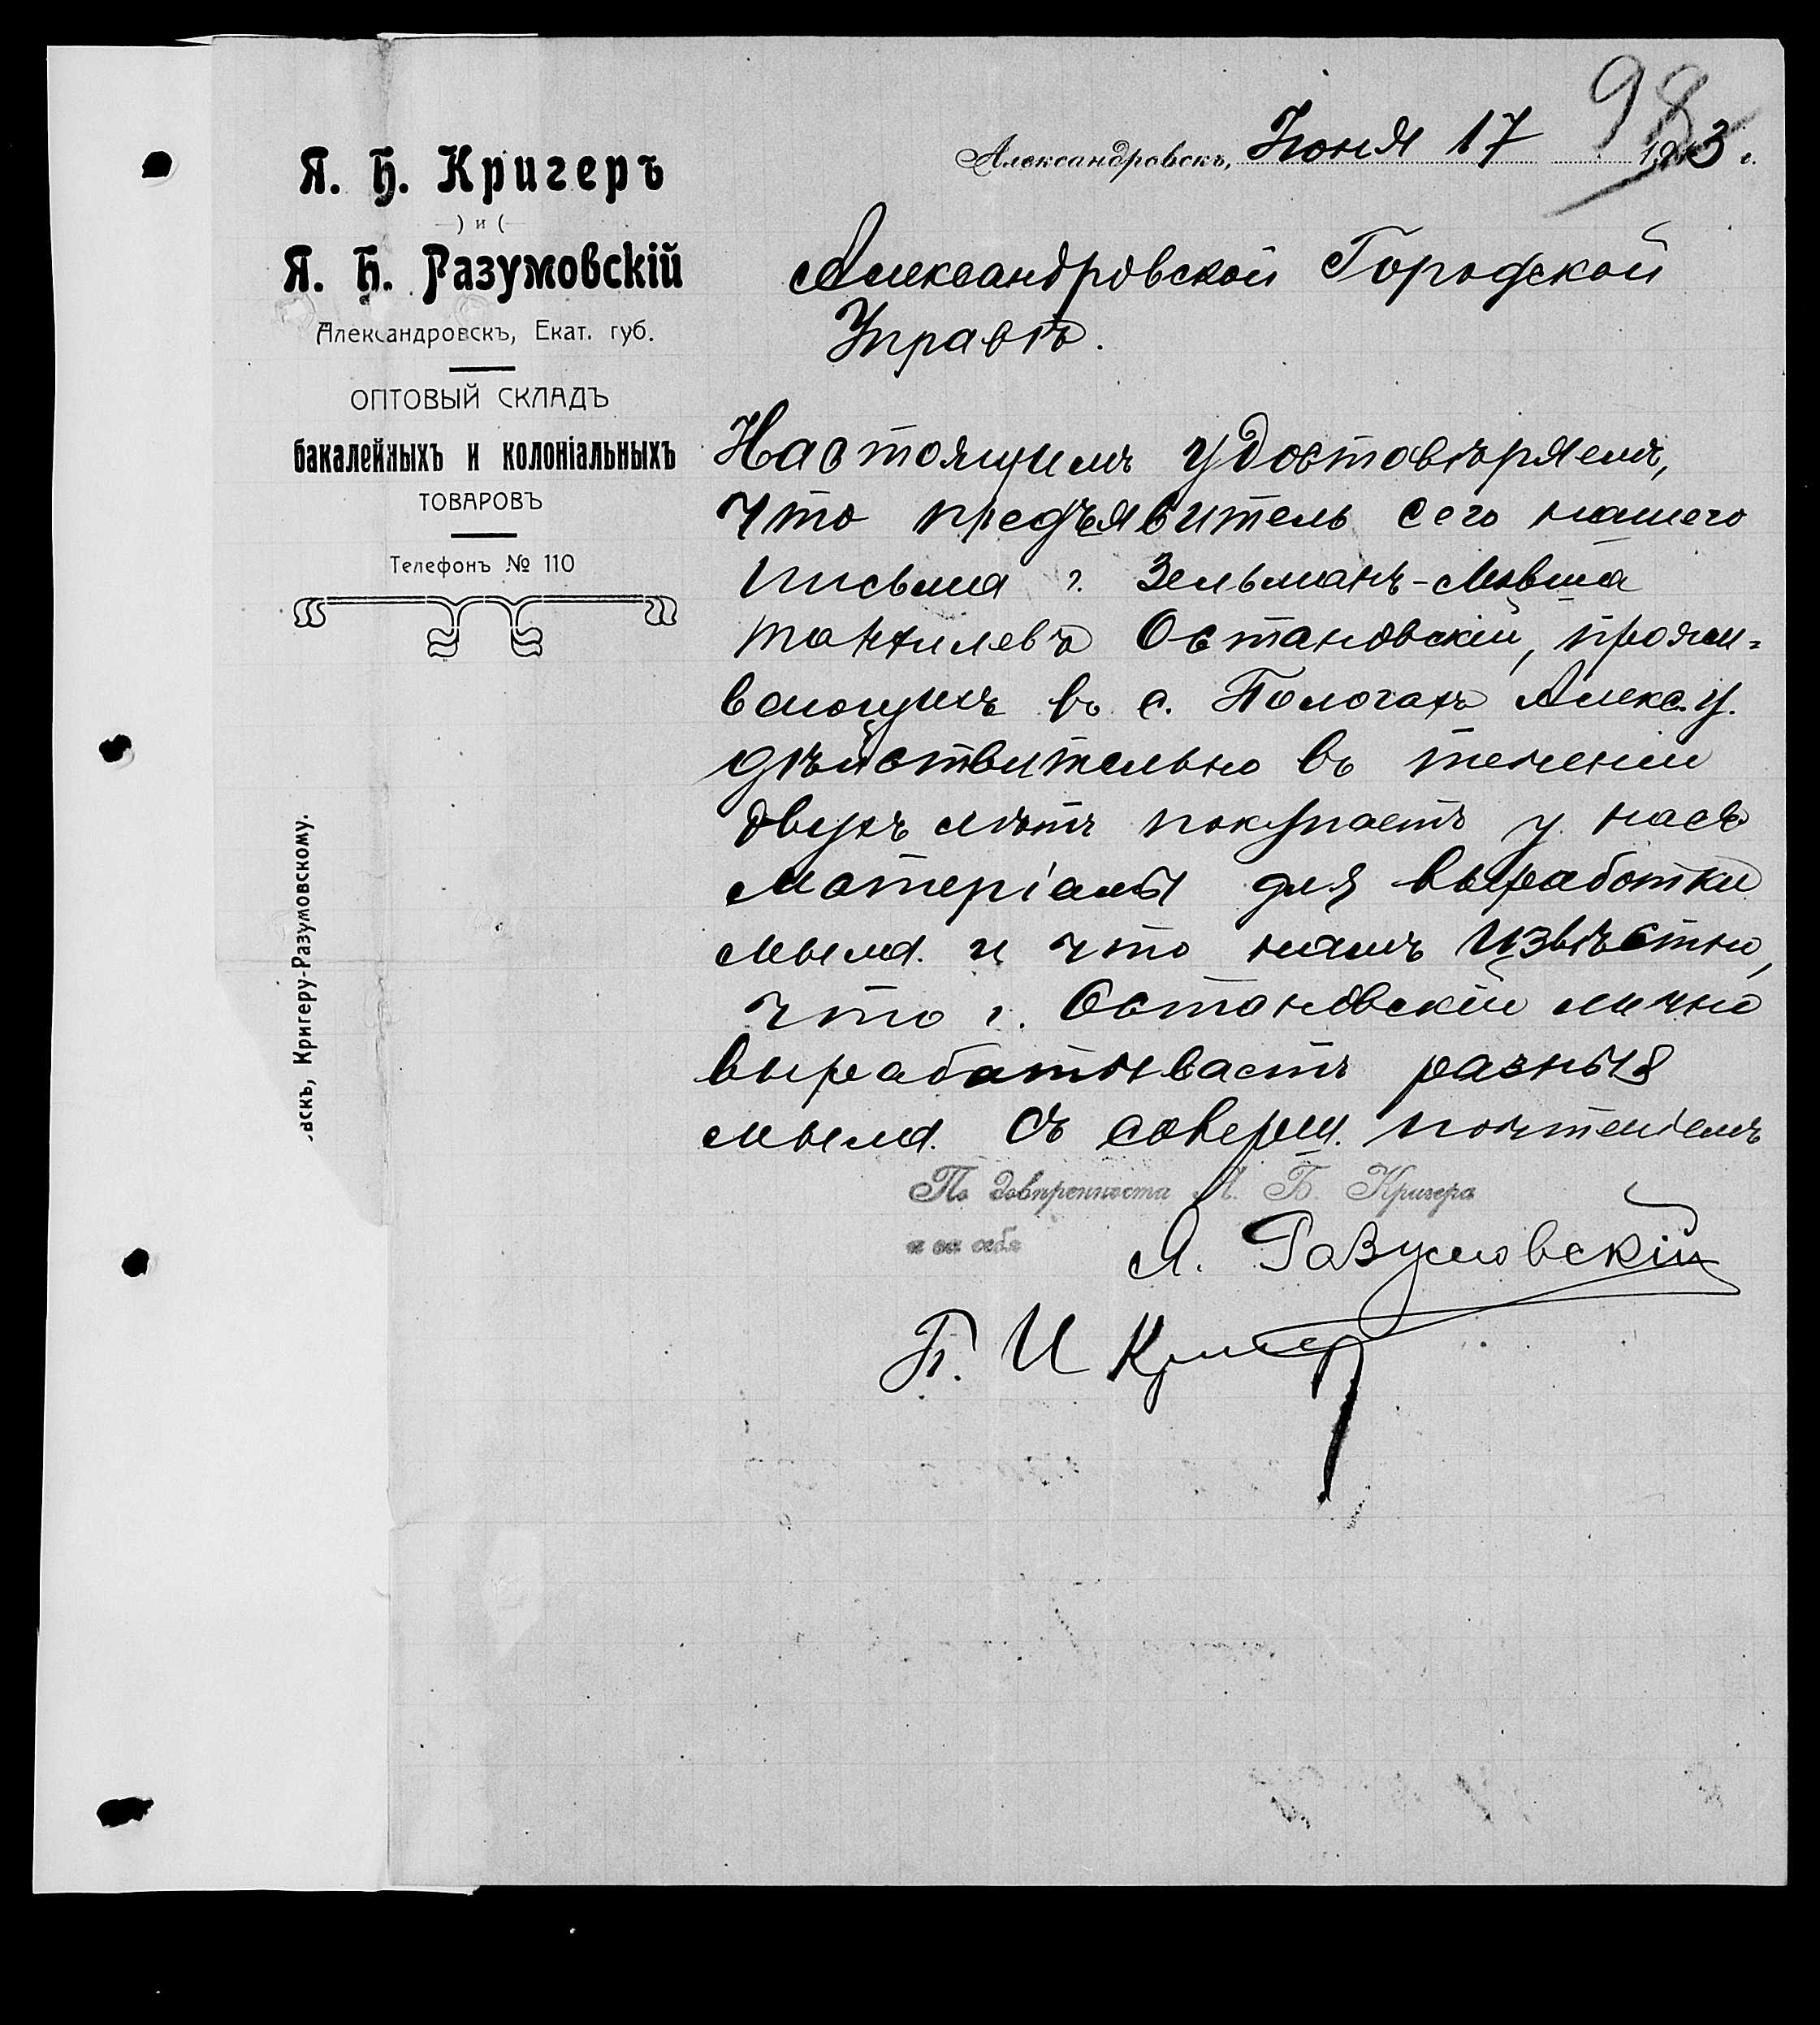 98
Я. Б. Кригеръ
) и (
Я. Б. Разумовскій
Александровскъ, Екат. губ.
ОПТОВЫЙ СКЛАДЪ
бакалейныхъ и колоніальныхъ
ТОВАРОВЪ
Телефонъ № 110
вскъ, Кригеру-Разумовскому.
Александровскъ, Іюня 17 3 г.
Александровской Городской
Управѣ.
Настоящимъ удостовѣряемъ,
что предъявитель сего нашего
письма г. Зельманъ-Мовша
Танхилевъ Остановскій, прожи=
вающихъ въ с. Пологахъ Алекс. у.
дѣйствительно въ теченіи
двухъ лѣтъ покупаетъ у насъ
матеріалы для выработки
мыла и что намъ извѣстно,
что г. Остановскій лично
вырабатываетъ разныя
мыла. Съ соверш. почтеніемъ
По довѣренности Я. Б. Кригера
и за себя
Я. Разумовскій
Б. И Кригер